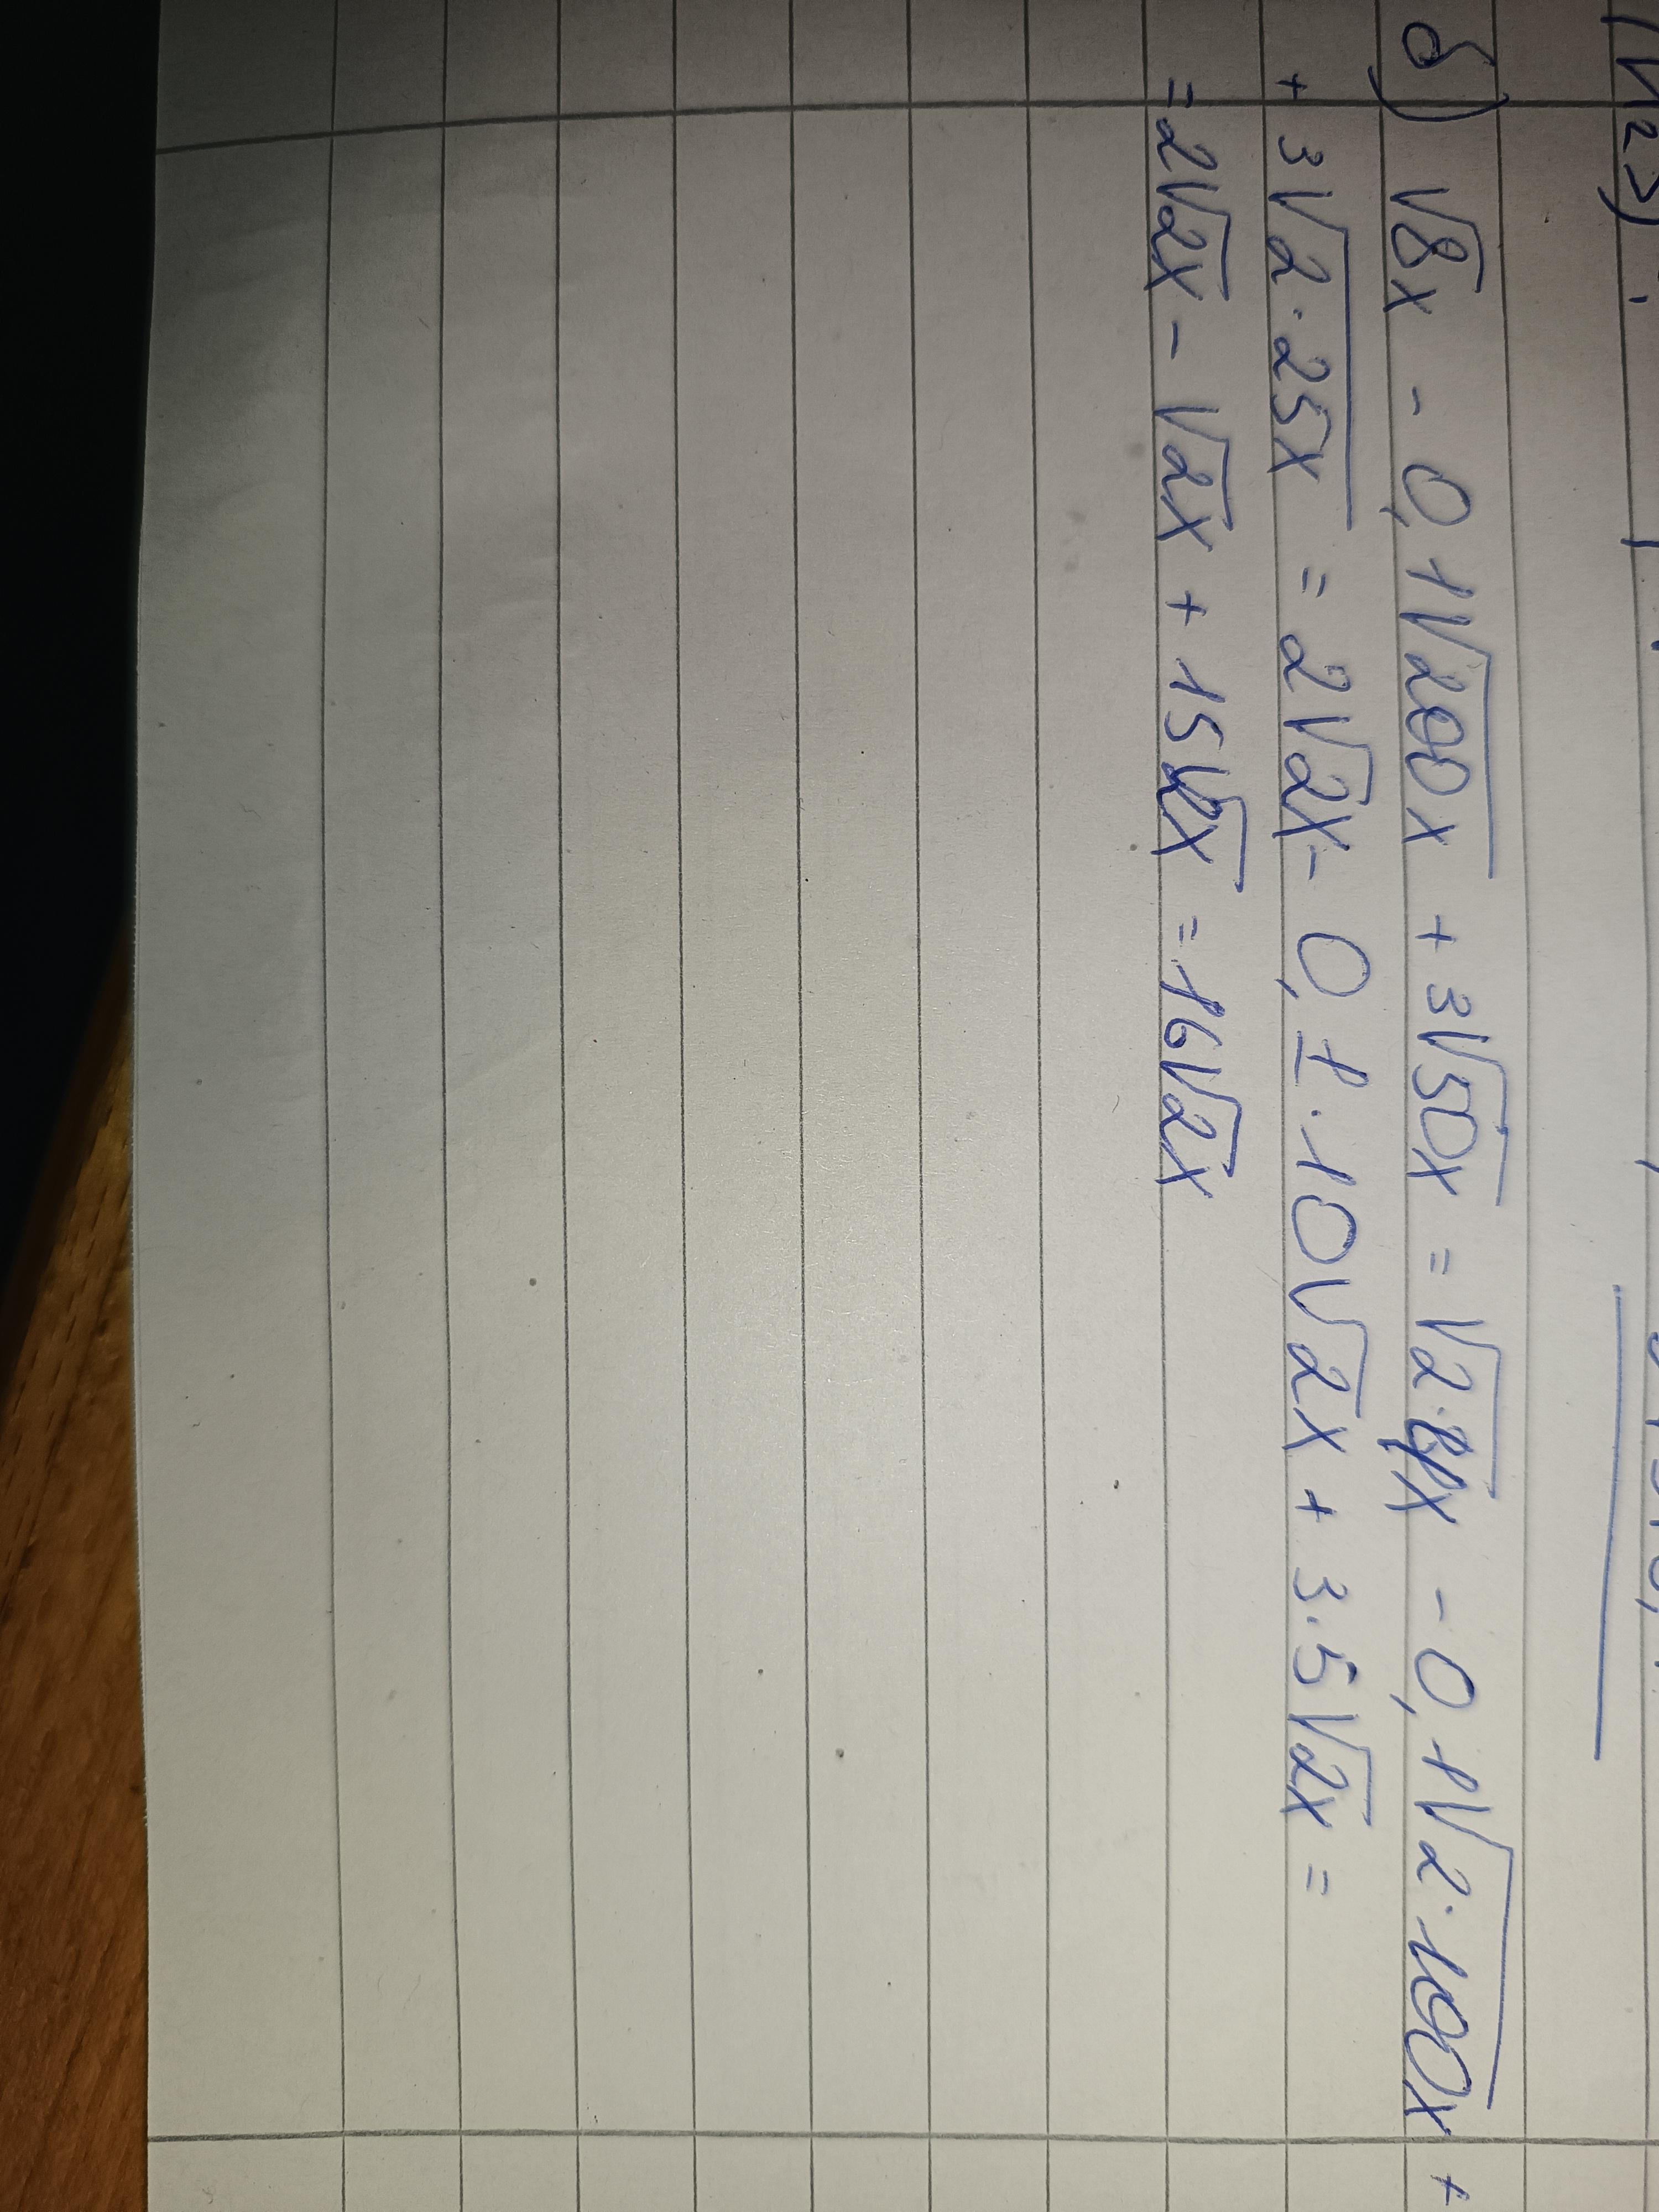 б) √8x - 0,1√200x + 3√50x = √2·4x - 0,1√2·100x +
+ 3√2·25x = 2√2x - 0,1·10√2x + 3·5√2x =
= 2√2x - √2x + 15√2x = 16√2x